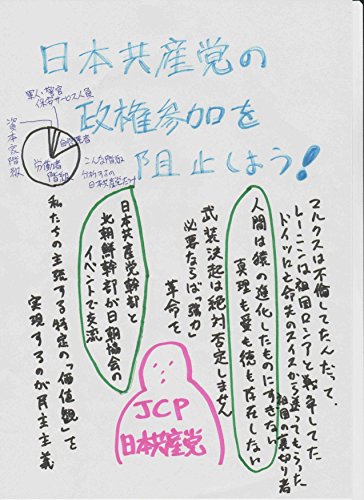 日本共産党の
政権参加を
阻止しよう!
軍人、警官
保安サービス人員
資本家階級
自営業者
労働者
階級
こんな階級
分析するの
日本共産党だけ
マルクスは不倫してたんだって、
レーニンは祖国ロシアと戦争してた
ドイツに亡命先のスイスから送ってもらった
祖国の裏切り者
人間は猿の進化したものにすぎない
真理も愛も徳も存在しない
武装決起は絶対否定しません
必要ならば「強力」
革命を
日本共産党幹部と
北朝鮮幹部が日朝協会の
イベントで交流
私たちの主張する特定の「価値観」を
実現するのが民主主義
JCP
日本共産党